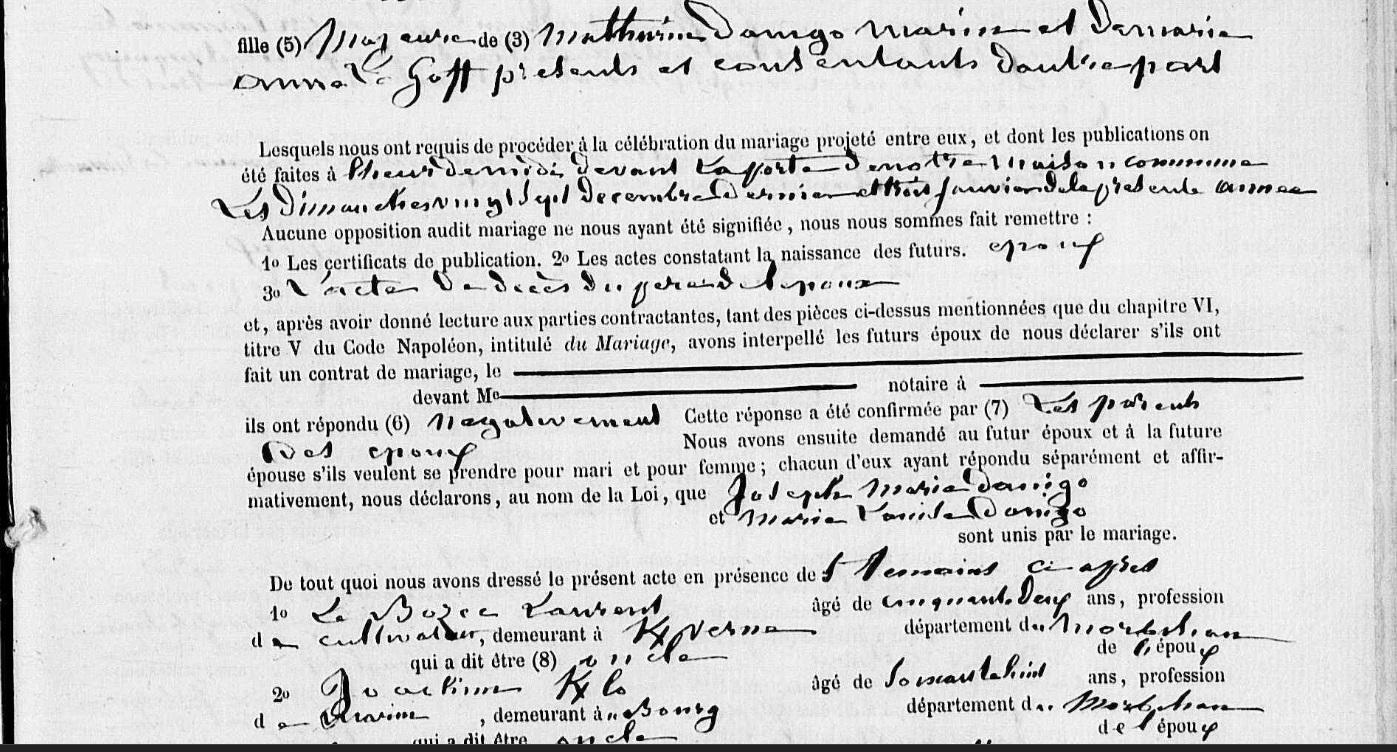 fille (5) Majeure de (3) Mathurin Danigo marin et de marie
anne Le Goff présents et consentants d'autre part
Lesquels nous ont requis de procéder à la célébration du mariage projeté entre eux, et dont les publications on
été faites à l'heure de midi devant la porte de notre maison commune
Les Dimanches vingt sept décembre dernier et trois janvier de la présente année
Aucune opposition audit mariage ne nous ayant été signifiée, nous nous sommes fait remettre :
1o Les certificats de publication. 2o Les actes constatant la naissance des futurs. epoux
3o L'acte de décès du père de l'epoux
et, après avoir donné lecture aux parties contractantes, tant des pièces ci-dessus mentionnées que du chapitre VI,
titre V du Code Napoléon, intitulé du Mariage, avons interpellé les futurs époux de nous déclarer s'ils ont
fait un contrat de mariage, le
devant Me notaire à
ils ont répondu (6) negativement Cette réponse a été confirmée par (7) Les parents
Des epoux Nous avons ensuite demandé au futur époux et à la future
épouse s'ils veulent se prendre pour mari et pour femme ; chacun d'eux ayant répondu séparément et affir-
mativement, nous déclarons, au nom de la Loi, que Joseph Marie Danigo
et Marie Louise Danigo
sont unis par le mariage.
De tout quoi nous avons dressé le présent acte en présence des temoins ci apres
1o Le Bozec Laurent âgé de cinquante deux ans, profession
de cultivateur, demeurant à département du Morbihan
qui a dit être (8) oncle de l'époux
2o Joachim âgé de ans, profession
de marin, demeurant au Bourg département du Morbihan
qui a dit être oncle de l'époux